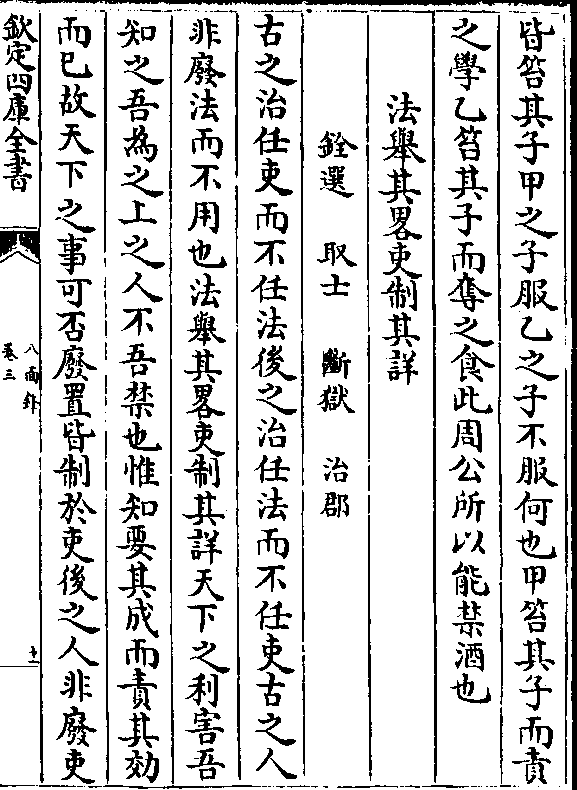 皆笞其子甲之子服乙之子不服何也甲笞其子而責
之學乙笞其子而奪之食此周公所以能禁酒也
法舉其畧吏制其詳
銓選 取士 斷獄 治郡
古之治任吏而不任法後之治任法而不任吏古之人
非廢法而不用也法舉其畧吏制其詳天下之利害吾
知之吾為之上之人不吾禁也惟知要其成而責其効
而已故天下之事可否廢置皆制於吏後之人非廢吏
欽定四庫全書
八面鋒
卷三
十一